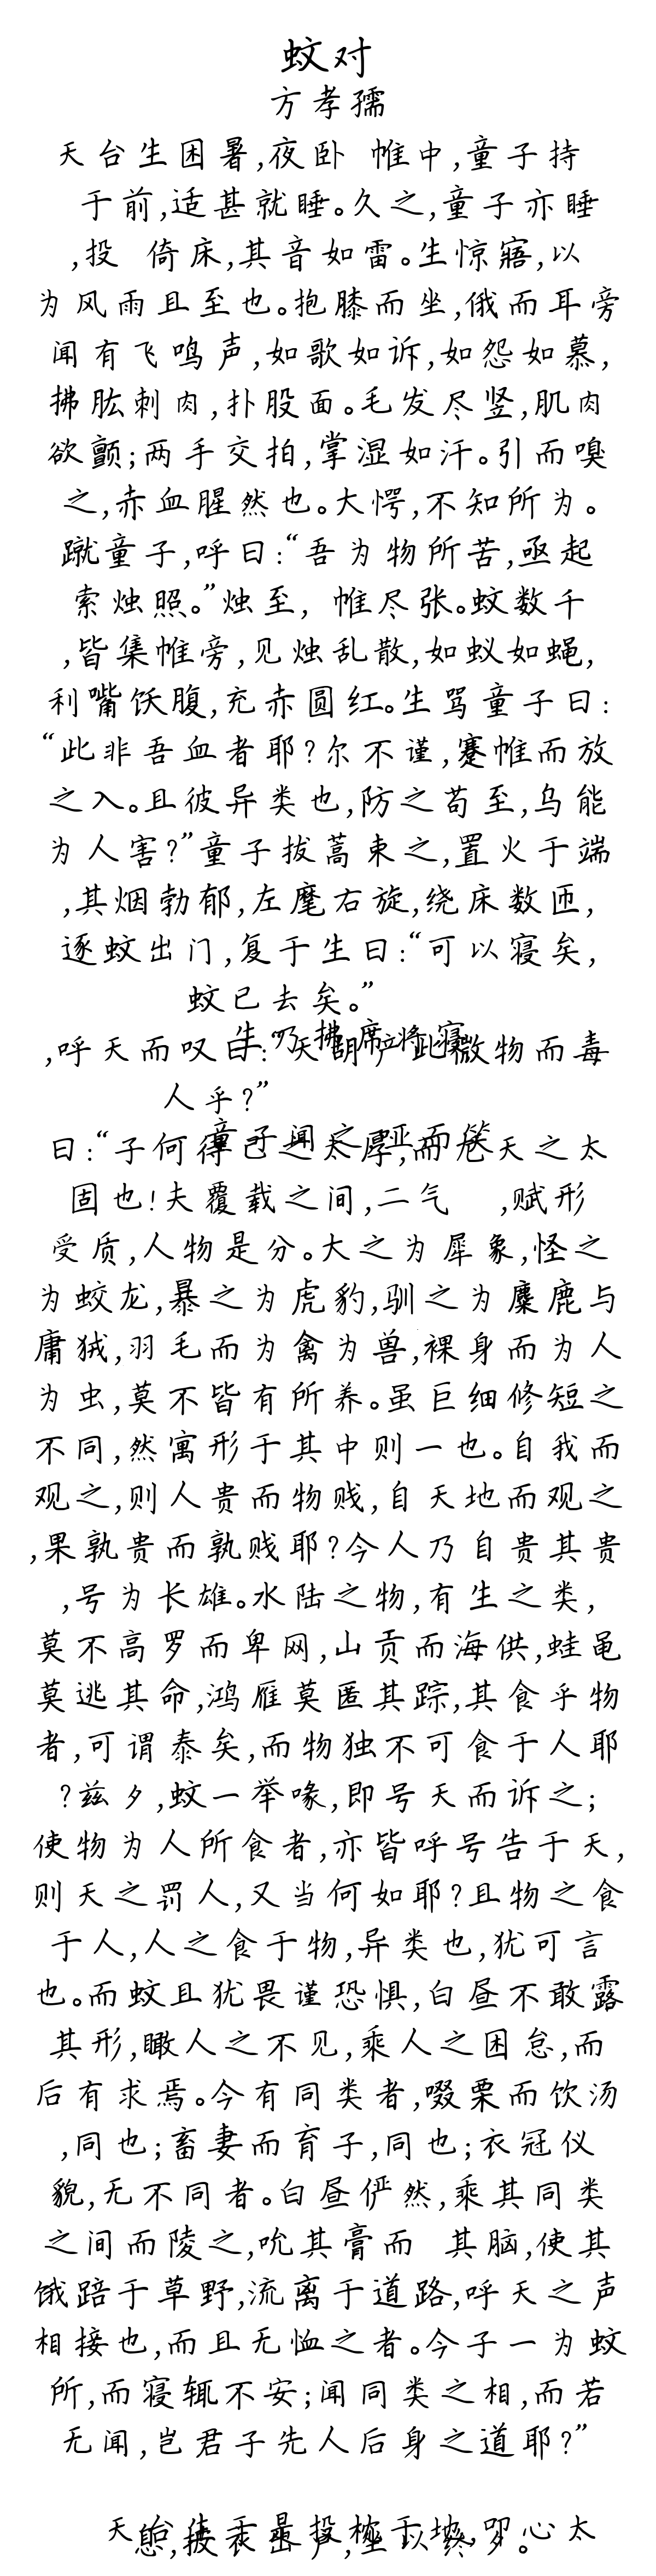 蚊对
方孝孺
天台生困暑,夜卧 帷中,童子持
于前,适甚就睡。久之,童子亦睡
,投 倚床,其音如雷。生惊寤,以
为风雨且至也。抱膝而坐,俄而耳旁
闻有飞鸣声,如歌如诉,如怨如慕,
拂肱刺肉,扑股面。毛发尽竖,肌肉
欲颤;两手交拍,掌湿如汗。引而嗅
之,赤血腥然也。大愕,不知所为。
蹴童子,呼曰:“吾为物所苦,亟起
索烛照。”烛至, 帷尽张。蚊数千
,皆集帷旁,见烛乱散,如蚁如蝇,
利嘴饫腹,充赤圆红。生骂童子曰:
“此非吾血者耶?尔不谨,蹇帷而放
之入。且彼异类也,防之苟至,乌能
为人害?”童子拔蒿束之,置火于端
,其烟勃郁,左麾右旋,绕床数匝,
逐蚊出门,复于生曰:“可以寝矣,
蚊已去矣。”
生乃拂席将寝
,呼天而叹曰:“天胡产此微物而毒
人乎?”
童子闻之,哑而笑
曰:“子何待己之太厚,而尤天之太
固也!夫覆载之间,二气 ,赋形
受质,人物是分。大之为犀象,怪之
为蛟龙,暴之为虎豹,驯之为麋鹿与
庸狨,羽毛而为禽为兽,裸身而为人
为虫,莫不皆有所养。虽巨细修短之
不同,然寓形于其中则一也。自我而
观之,则人贵而物贱,自天地而观之
,果孰贵而孰贱耶?今人乃自贵其贵
,号为长雄。水陆之物,有生之类,
莫不高罗而卑网,山贡而海供,蛙黾
莫逃其命,鸿雁莫匿其踪,其食乎物
者,可谓泰矣,而物独不可食于人耶
?兹夕,蚊一举喙,即号天而诉之;
使物为人所食者,亦皆呼号告于天,
则天之罚人,又当何如耶?且物之食
于人,人之食于物,异类也,犹可言
也。而蚊且犹畏谨恐惧,白昼不敢露
其形,瞰人之不见,乘人之困怠,而
后有求焉。今有同类者,啜栗而饮汤
,同也;畜妻而育子,同也;衣冠仪
貌,无不同者。白昼俨然,乘其同类
之间而陵之,吮其膏而 其脑,使其
饿踣于草野,流离于道路,呼天之声
相接也,而且无恤之者。今子一为蚊
所,而寝辄不安;闻同类之相,而若
无闻,岂君子先人后身之道耶?”
天台生于是投枕于地,叩心太
息,披衣出户,坐以终夕。